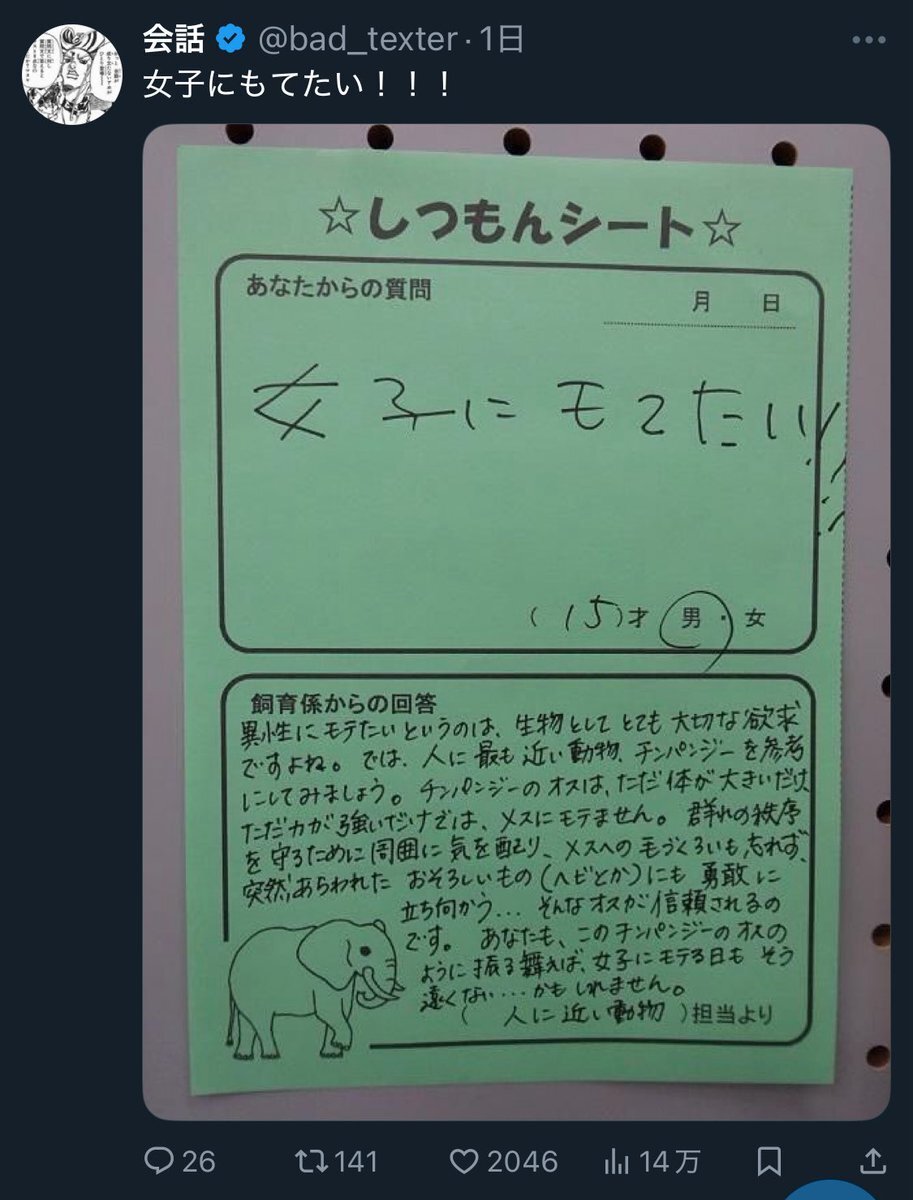 会話 @bad_texter · 1日
女子にもてたい！！！
☆しつもんシート☆
あなたからの質問
月 日
女子にモてたい!!!
(15)才 男・女
飼育係からの回答
異性にモテたいというのは、生物としてとても大切な欲求
ですよね。では、人に最も近い動物、チンパンジーを参考
にしてみましょう。チンパンジーのオスは、ただ体が大きいだけ、
ただ力が強いだけでは、メスにモテません。群れの秩序
を守るために周囲に気を配り、メスへの毛づくろいも忘れず、
突然あらわれたおそろしいもの(ヘビとか)にも勇敢に
立ち向かう…そんなオスが信頼されるの
です。あなたも、このチンパンジーのオスの
ように振る舞えば、女子にモテる日もそう
遠くない…かもしれません。
(人に近い動物)担当より
26 141 2046 14万